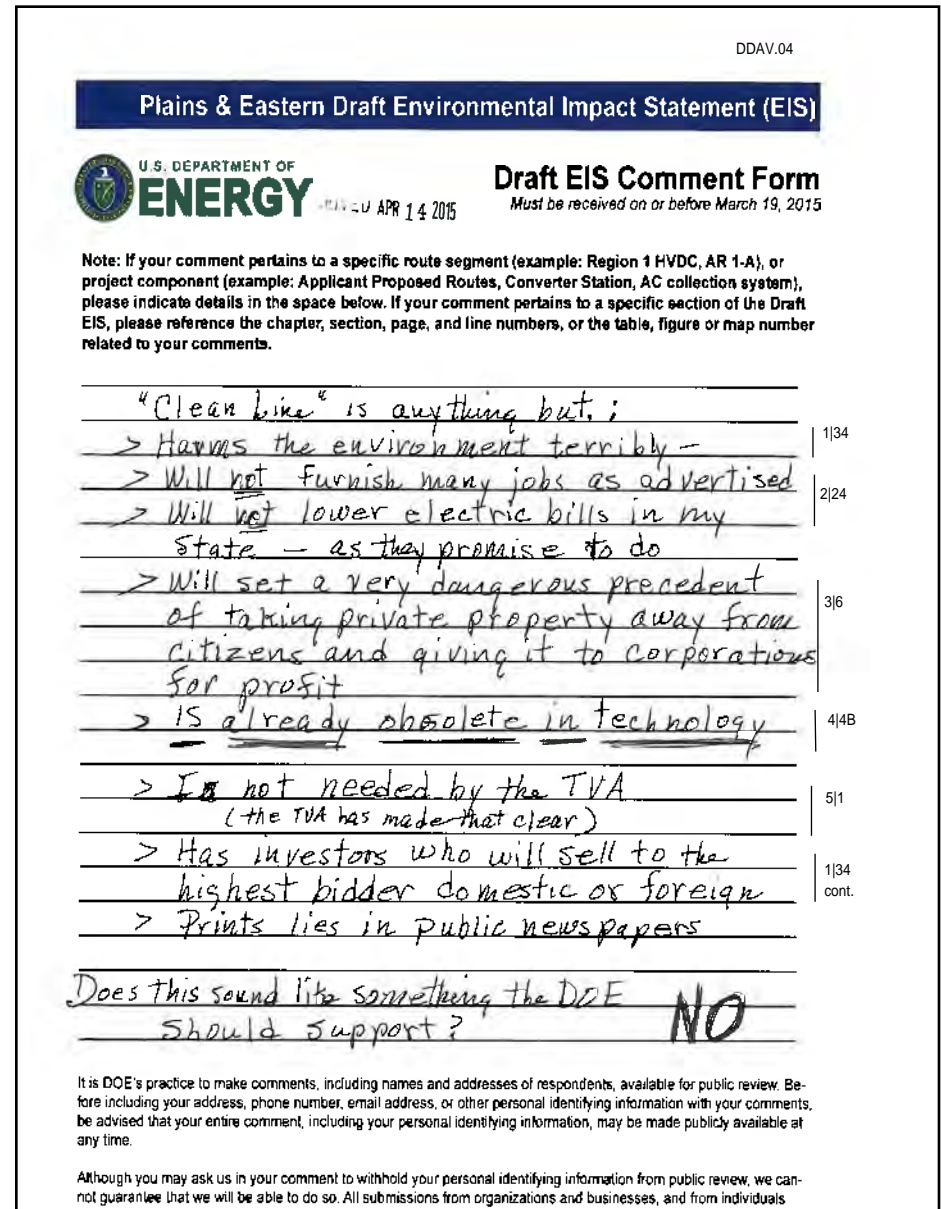 DDAV.04
Plains & Eastern Draft Environmental Impact Statement (EIS)
U.S. DEPARTMENT OF
ENERGY
Draft EIS Comment Form
APR 14 2015
Must be received on or before March 19, 2015
Note: If your comment pertains to a specific route segment (example: Region 1 HVDC, AR 1-A), or
project component (example: Applicant Proposed Routes, Converter Station, AC collection system),
please indicate details in the space below. If your comment pertains to a specific section of the Draft
EIS, please reference the chapter, section, page, and line numbers, or the table, figure or map number
related to your comments.
"Clean Line" is anything but, ;
> Harms the environment terribly —
1|34
> Will not furnish many jobs as advertised
2|24
> Will not lower electric bills in my
State — as they promise to do
> Will set a very dangerous precedent
3|6
of taking private property away from
citizens and giving it to corporations
for profit
> IS already obsolete in technology
4|4B
> Is not needed by the TVA
5|1
(the TVA has made that clear)
> Has investors who will sell to the
1|34
highest bidder domestic or foreign
cont.
> Prints lies in public newspapers
Does this sound like something the DOE
should support? NO
It is DOE's practice to make comments, including names and addresses of respondents, available for public review. Be-
fore including your address, phone number, email address, or other personal identifying information with your comments,
be advised that your entire comment, including your personal identifying information, may be made publicly available at
any time.
Although you may ask us in your comment to withhold your personal identifying information from public review, we can-
not guarantee that we will be able to do so. All submissions from organizations and businesses, and from individuals